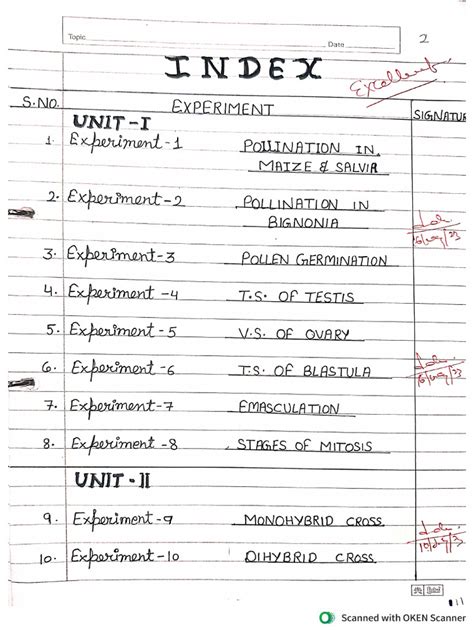 Topic
Date
2
INDEX
Excellent
S.NO. EXPERIMENT SIGNATUR
UNIT-I
1. Experiment-1 POLLINATION IN
MAIZE & SALVIA
2. Experiment-2 POLLINATION IN
BIGNONIA
3. Experiment-3 POLLEN GERMINATION
4. Experiment-4 T.S. OF TESTIS
5. Experiment-5 V.S. OF OVARY
6. Experiment-6 T.S. OF BLASTULA
7. Experiment-7 EMASCULATION
8. Experiment-8 STAGES OF MITOSIS
UNIT-II
9. Experiment-9 MONOHYBRID CROSS
10. Experiment-10 DIHYBRID CROSS
Scanned with OKEN Scanner